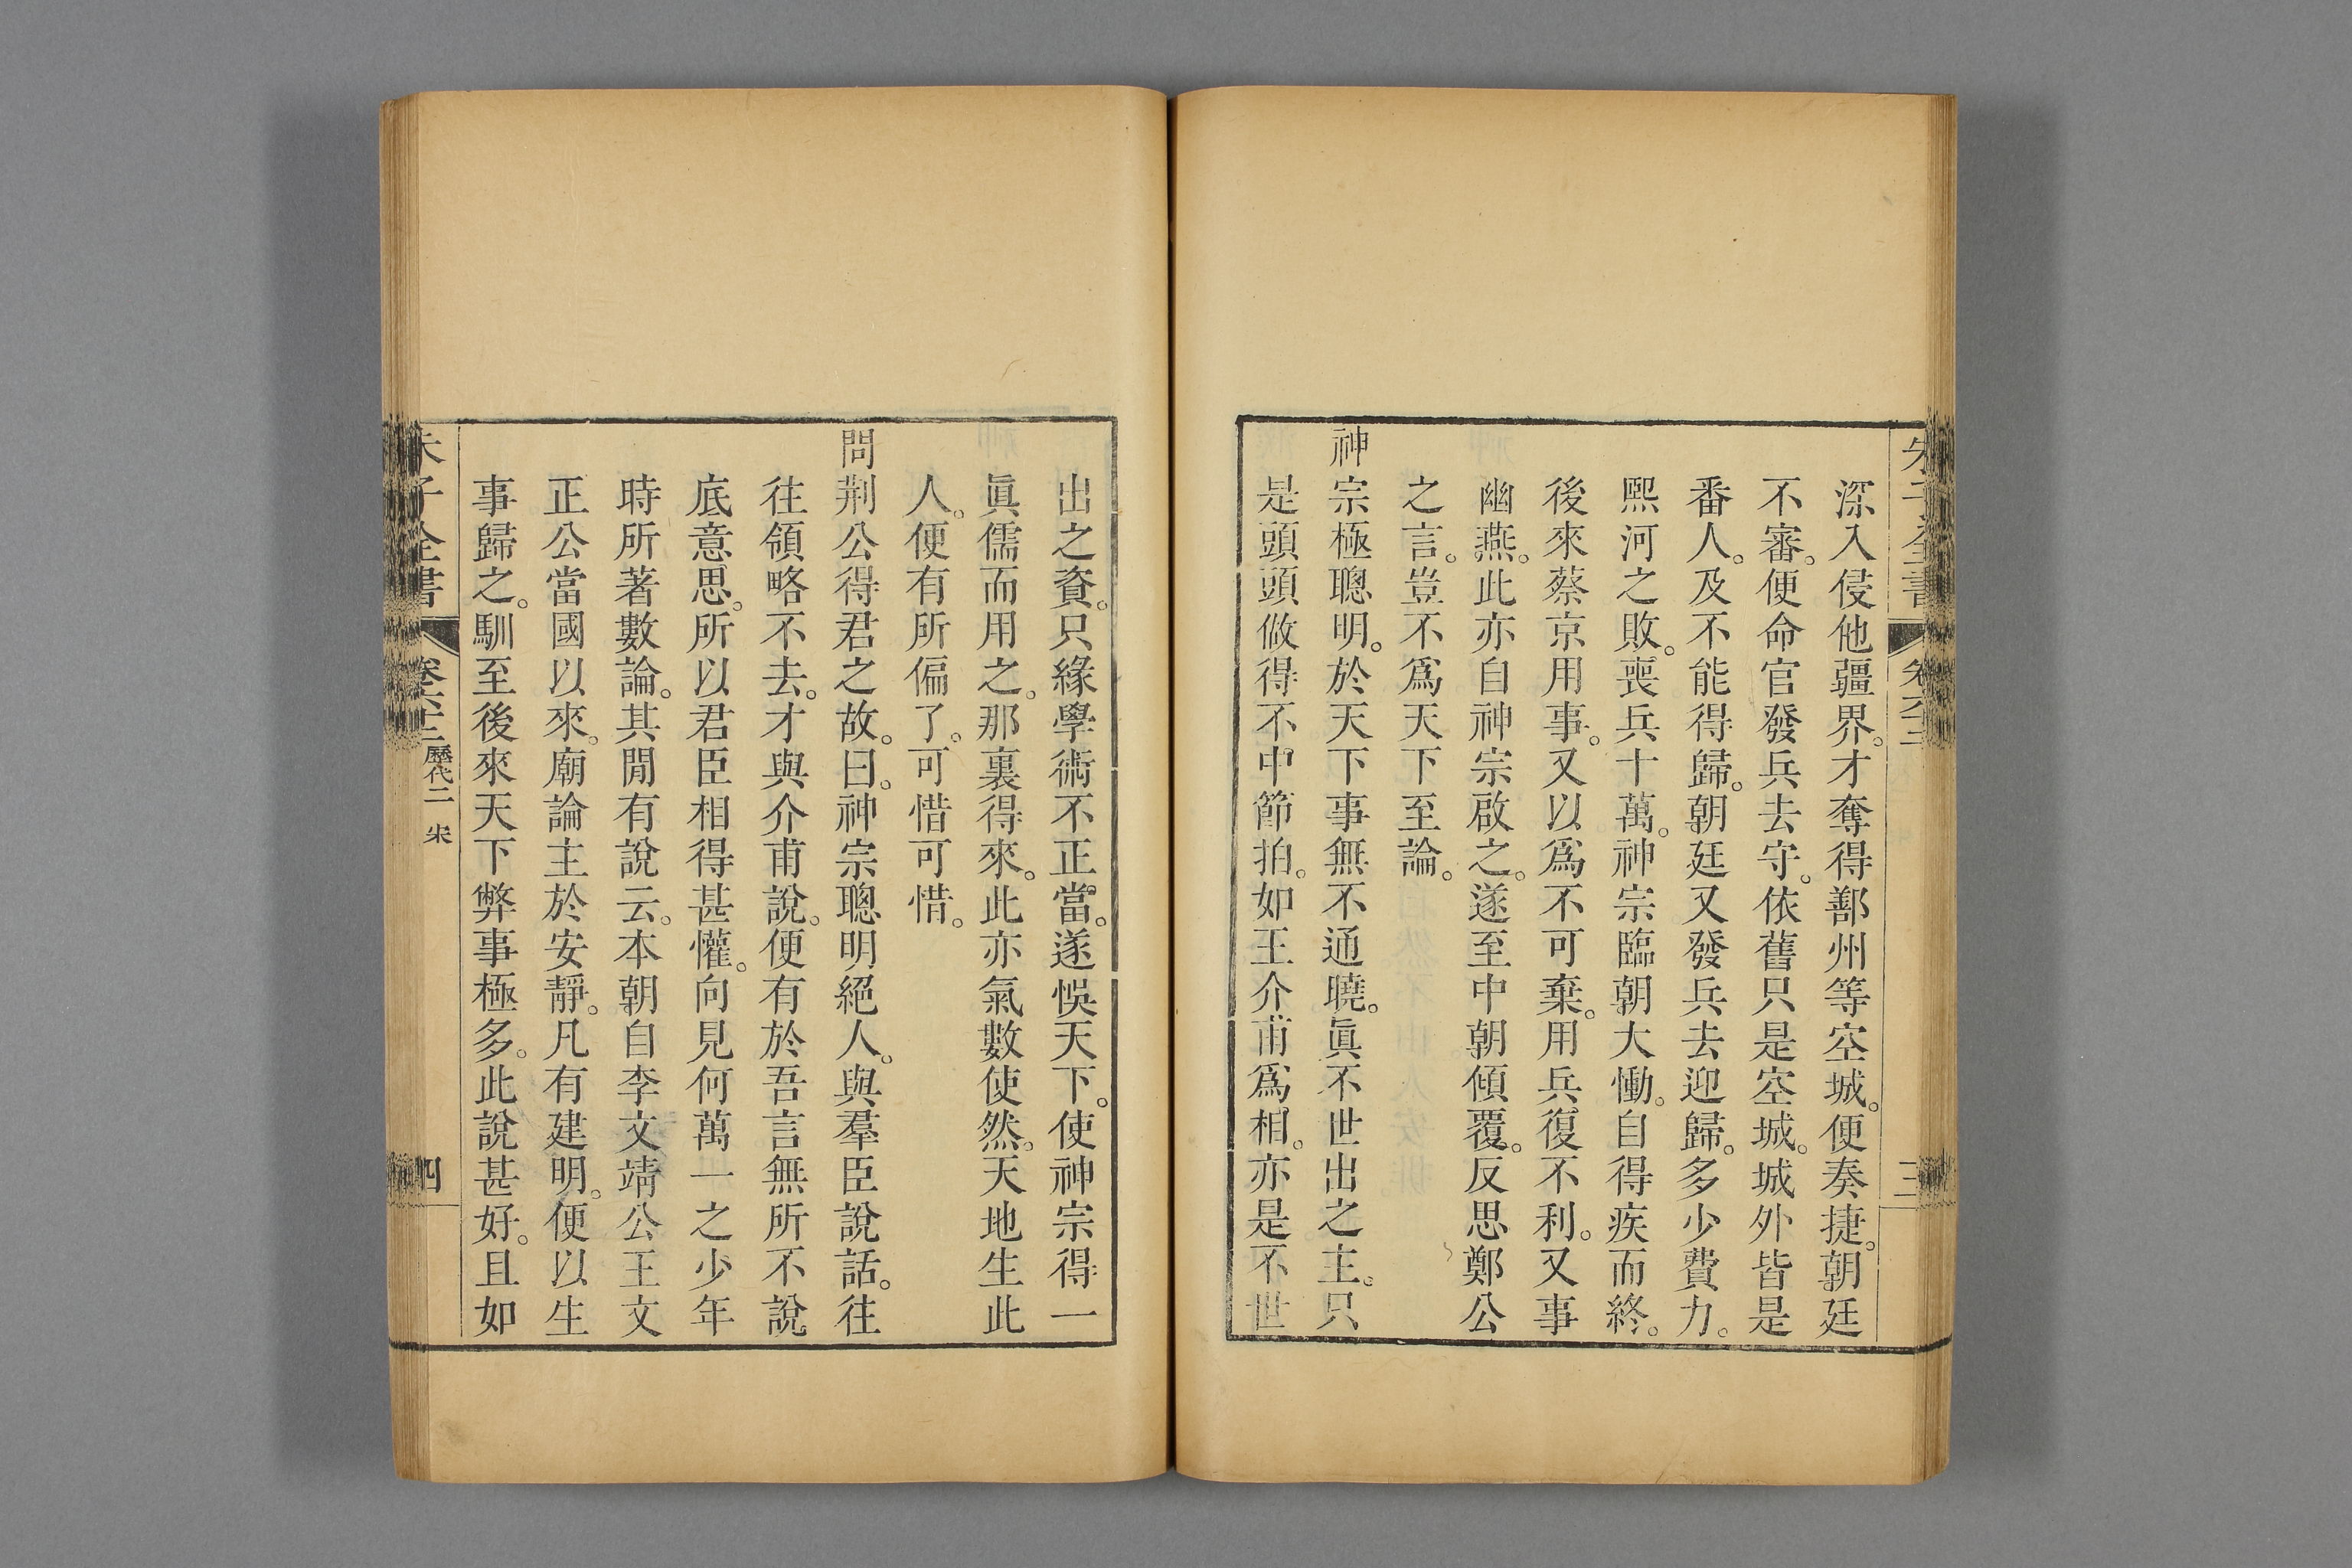 深入侵他疆界。才奪得鄯州等空城。便奏捷。朝廷
不審。便命官發兵去守。依舊只是空城。城外皆是
番人。及不能得歸。朝廷又發兵去迎歸。多少費力。
熙河之敗。喪兵十萬。神宗臨朝大慟。自得疾而終。
後來蔡京用事。又以爲不可棄。用兵復不利。又事
幽燕。此亦自神宗啟之。遂至中朝傾覆。反思鄭公
之言。豈不爲天下至論。
神宗極聰明。於天下事無不通曉。眞不世出之主。只
是頭頭做得不中節拍。如王介甫爲相。亦是不世
出之資。只緣學術不正當。遂悞天下。使神宗得一
眞儒而用之。那裏得來。此亦氣數使然。天地生此
人。便有所偏了。可惜可惜。
問荆公得君之故。曰。神宗聰明絕人。與羣臣說話。往
往領略不去。才與介甫說。便有於吾言無所不說
底意思。所以君臣相得甚懽。向見何萬一之少年
時所著數論。其閒有說云。本朝自李文靖公王文
正公當國以來。廟論主於安靜。凡有建明。便以生
事歸之。馴至後來天下弊事極多。此說甚好。且如
朱子全書
歷代二 宋
四